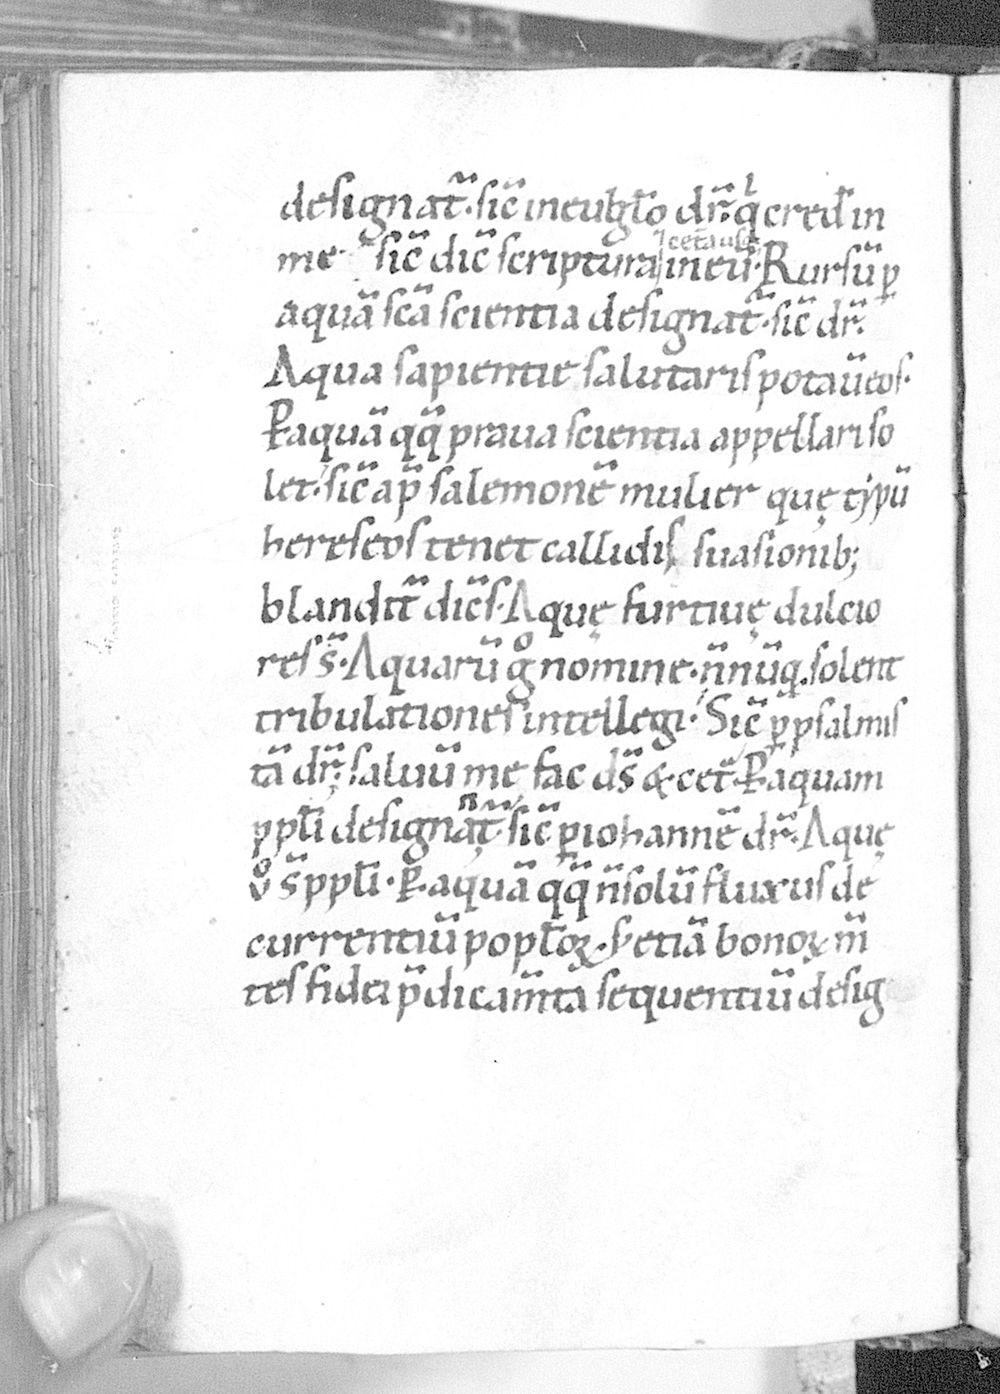 designat̄. sic̄ in eubgl̄o dr̄. qͥ cred̄ in
me sic̄ dic̄ scriptura in eū. Rursū ꝑ
aquā scā scientia designat̄. sic̄ dr̄.
Aqua sapientie salutaris potaū eos.
P aquā qq̄ praua scientia appellari so
let. sic̄ ap̄ salemonē mulier quę tẏpū
hereseos tenet callidis suasionib;
blandit̄ dic̄s. Aquę furtiuę dulcio
res s̄. Aquarū gͦ nomine. nn̄ūq. solent
tribulationes intellegi. Sic̄ ꝑ psalmis
tā dr̄. saluū me fac ds̄ & cet̄. P aquam
ppl̄i designant̄. sic̄ ꝑ iohannē dr̄. Aquę
vͦ s̄ ppl̄i. P. aquā qq̄ n̄ solū fluxus de
currentiū popl̄oꝝ. s; etiā bonoꝝ m̄
tes fidei p̄dicam̄ta sequentiū desig